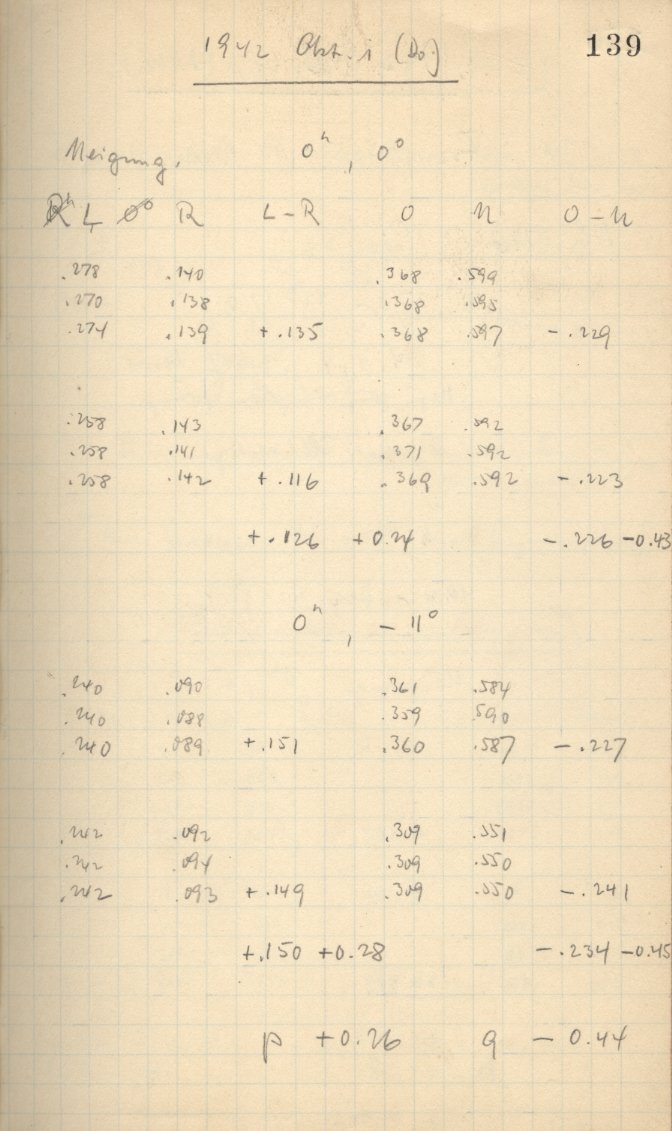 1942 Okt. 1 (Do.) 139
Neigung. 0ʰ, 0°
L R L-R O U O-U
.278 .140 .368 .599
.270 .138 .368 .595
.274 .139 +.135 .368 .597 -.229
.258 .143 .367 .592
.258 .141 .371 .592
.258 .142 +.116 .369 .592 -.223
+.126 +0.24 -.226 -0.43
0ʰ, -11°
.240 .090 .361 .584
.240 .088 .359 .590
.240 .089 +.151 .360 .587 -.227
.242 .092 .309 .551
.242 .094 .309 .550
.242 .093 +.149 .309 .550 -.241
+.150 +0.28 -.234 -0.45
p +0.26 q -0.44